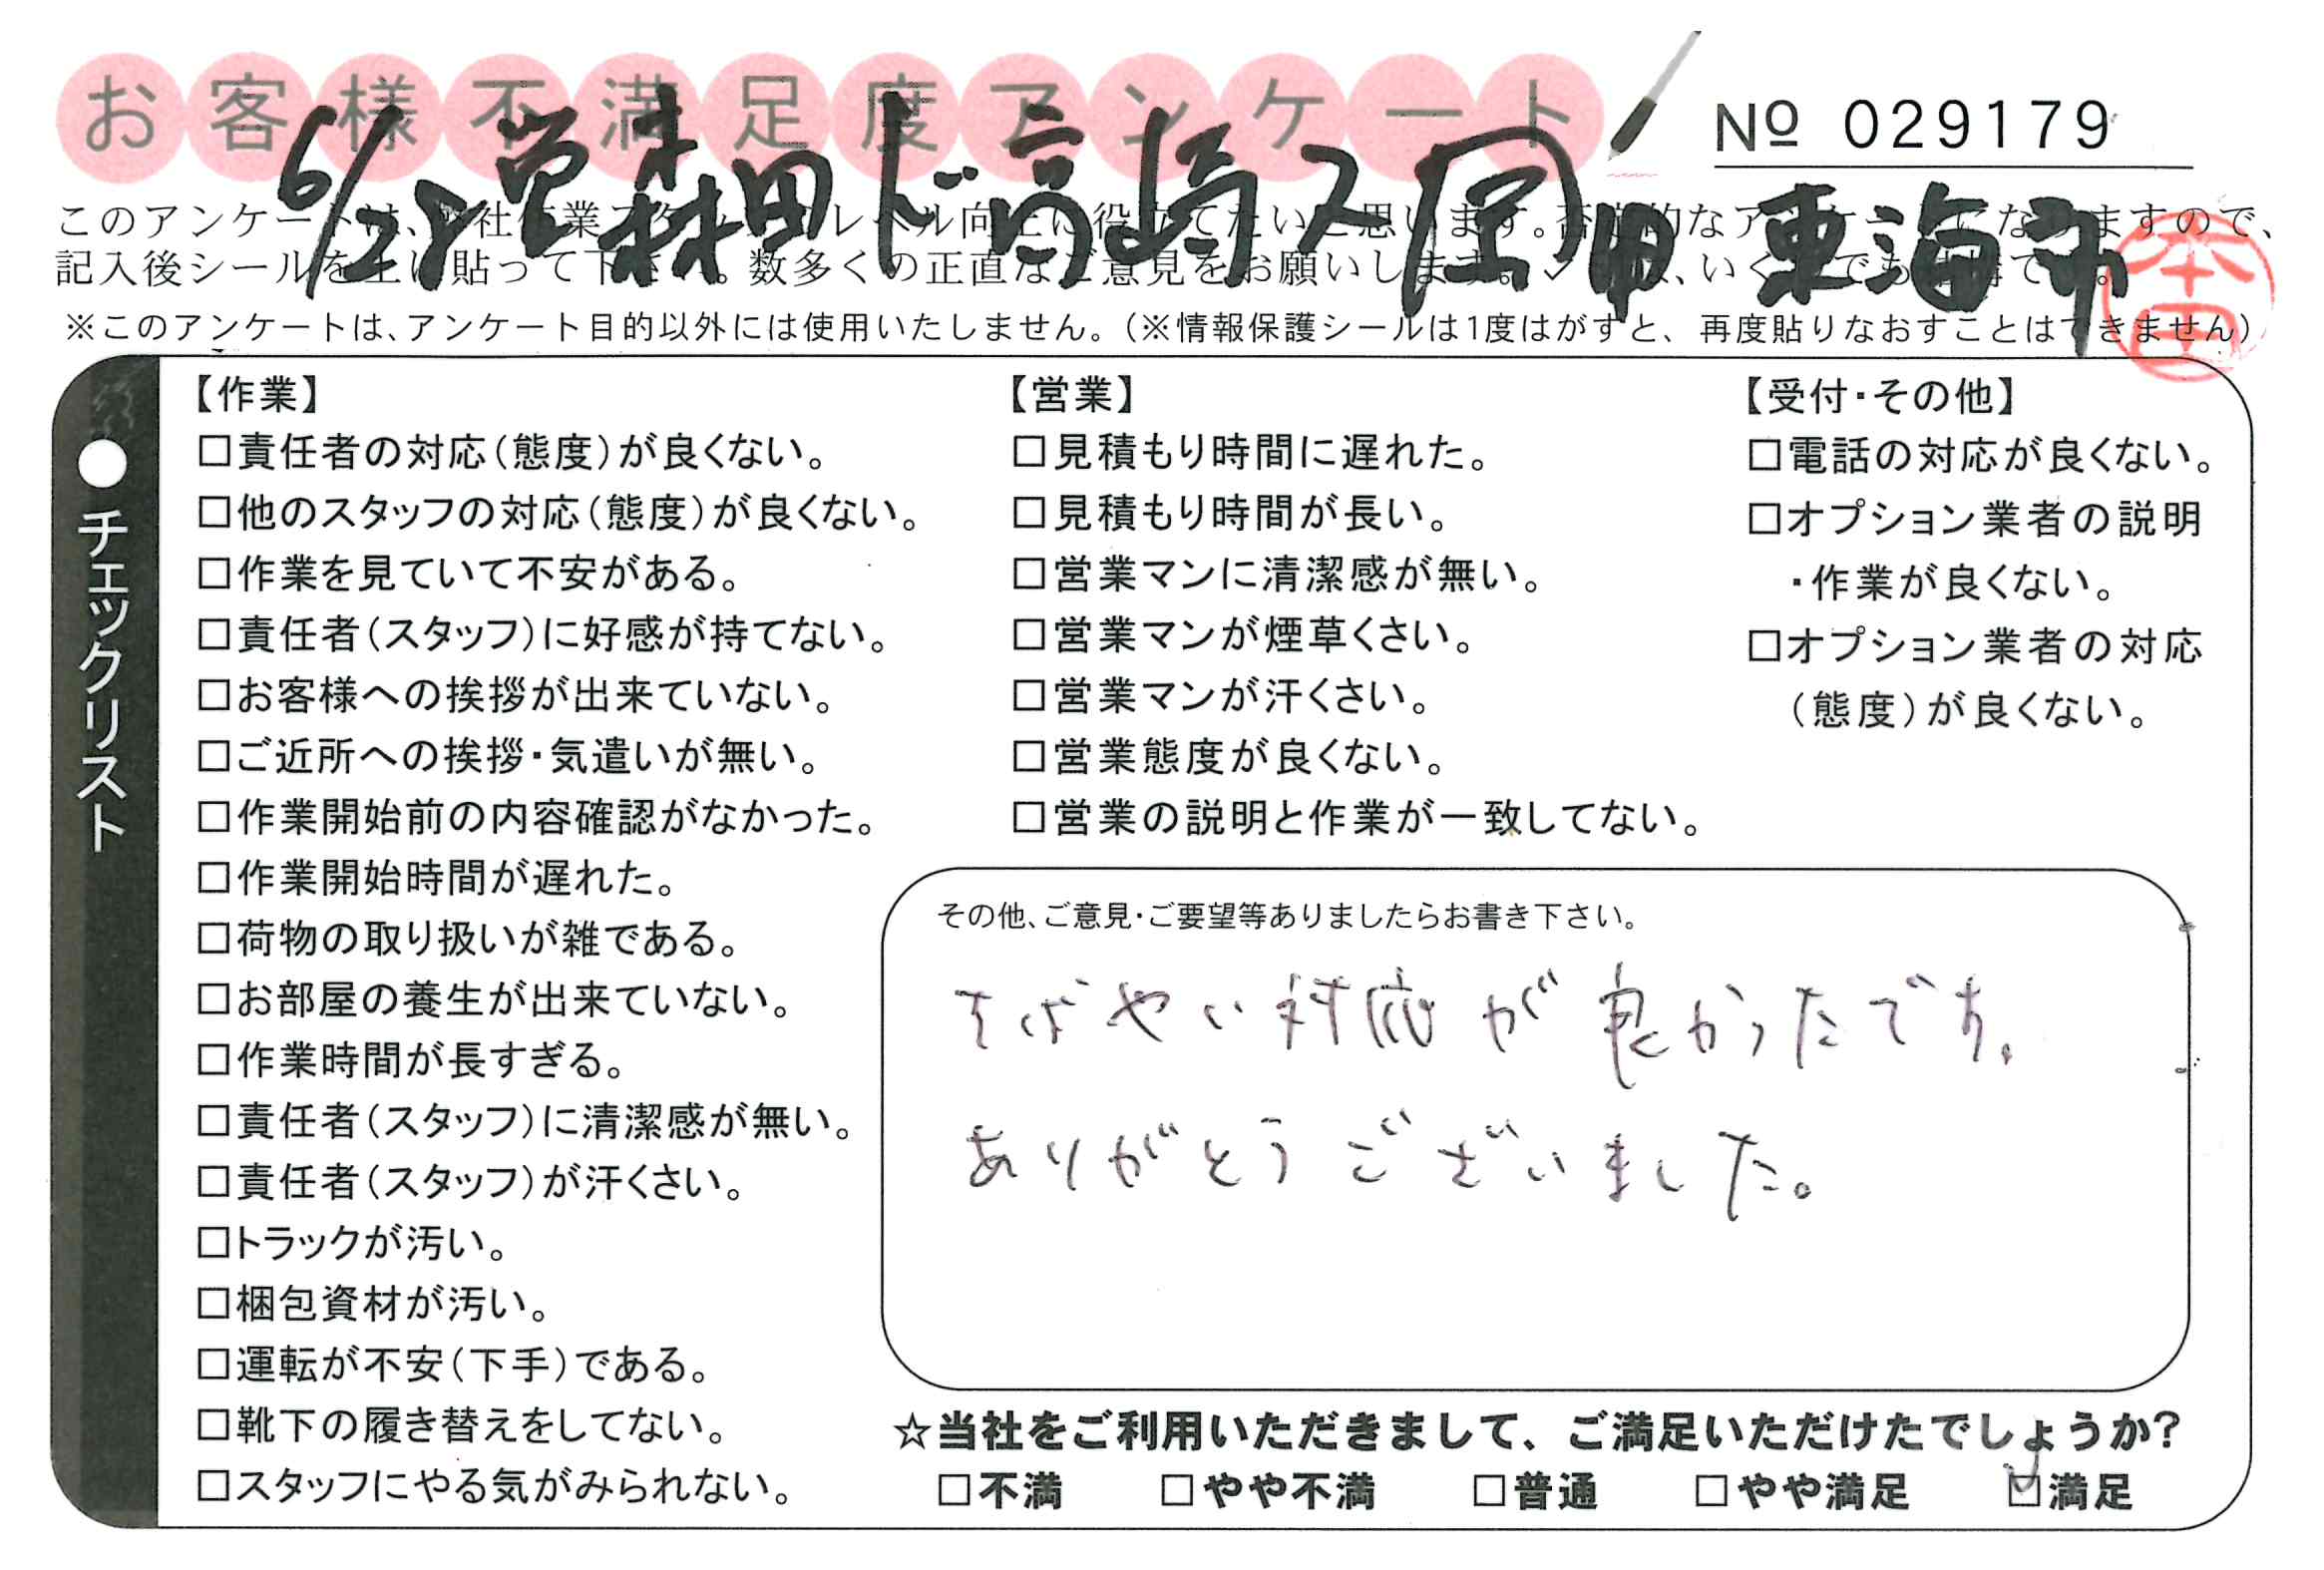 お客様不満足度アンケート
№ 029179
6/28 営森田 ド高崎 ス岡田 東海市
本田
このアンケートは、弊社作業 レベル向上に役立てたいと思います。否定的なアンケートになりますので、
記入後シールを上に貼って下さい。数多くの正直なご意見をお願いします。
※このアンケートは、アンケート目的以外には使用いたしません。(※情報保護シールは1度はがすと、再度貼りなおすことはできません)
●チェックリスト
【作業】
□責任者の対応(態度)が良くない。
□他のスタッフの対応(態度)が良くない。
□作業を見ていて不安がある。
□責任者(スタッフ)に好感が持てない。
□お客様への挨拶が出来ていない。
□ご近所への挨拶・気遣いが無い。
□作業開始前の内容確認がなかった。
□作業開始時間が遅れた。
□荷物の取り扱いが雑である。
□お部屋の養生が出来ていない。
□作業時間が長すぎる。
□責任者(スタッフ)に清潔感が無い。
□責任者(スタッフ)が汗くさい。
□トラックが汚い。
□梱包資材が汚い。
□運転が不安(下手)である。
□靴下の履き替えをしてない。
□スタッフにやる気がみられない。
【営業】
□見積もり時間に遅れた。
□見積もり時間が長い。
□営業マンに清潔感が無い。
□営業マンが煙草くさい。
□営業マンが汗くさい。
□営業態度が良くない。
□営業の説明と作業が一致してない。
【受付・その他】
□電話の対応が良くない。
□オプション業者の説明
・作業が良くない。
□オプション業者の対応
(態度)が良くない。
その他、ご意見・ご要望等ありましたらお書き下さい。
すばやい対応が良かったです。
ありがとうございました。
☆当社をご利用いただきまして、ご満足いただけたでしょうか?
□不満 □やや不満 □普通 □やや満足 ☑満足